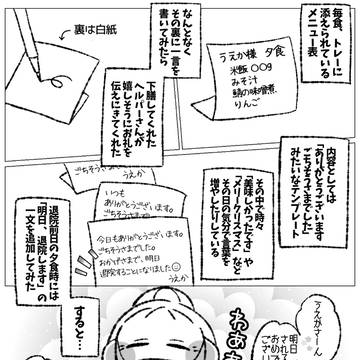 毎食、トレーに
添えられている
メニュー表
うえか様 夕食
米飯 〇〇g
みそ汁
鯖の味噌煮
りんご
なんとなく
その裏に一言を
書いてみたら
裏は白紙
下膳してくれた
ヘルパーさんが
嬉しそうにお礼を
伝えにきてくれた
内容としては
「ありがとうございます
ごちそうさまでした」
みたいなテンプレート
その中で時々
「美味しかったです」や
「メリークリスマス」など
その日の気分で言葉を
増やしたりしている
ごちそうさまでした。
うえか
いつも
ありがとうございます。
ごちそうさまでした。
今日もありがとうございます。
ごちそうさまでした。
おかげさまで、明日
退院することになりました☺
うえか
退院前日の夕食時には
「明日、退院します」の
一文を追加してみた
すると…
うえかさーん
明日
おめで
ござい
わあぁ